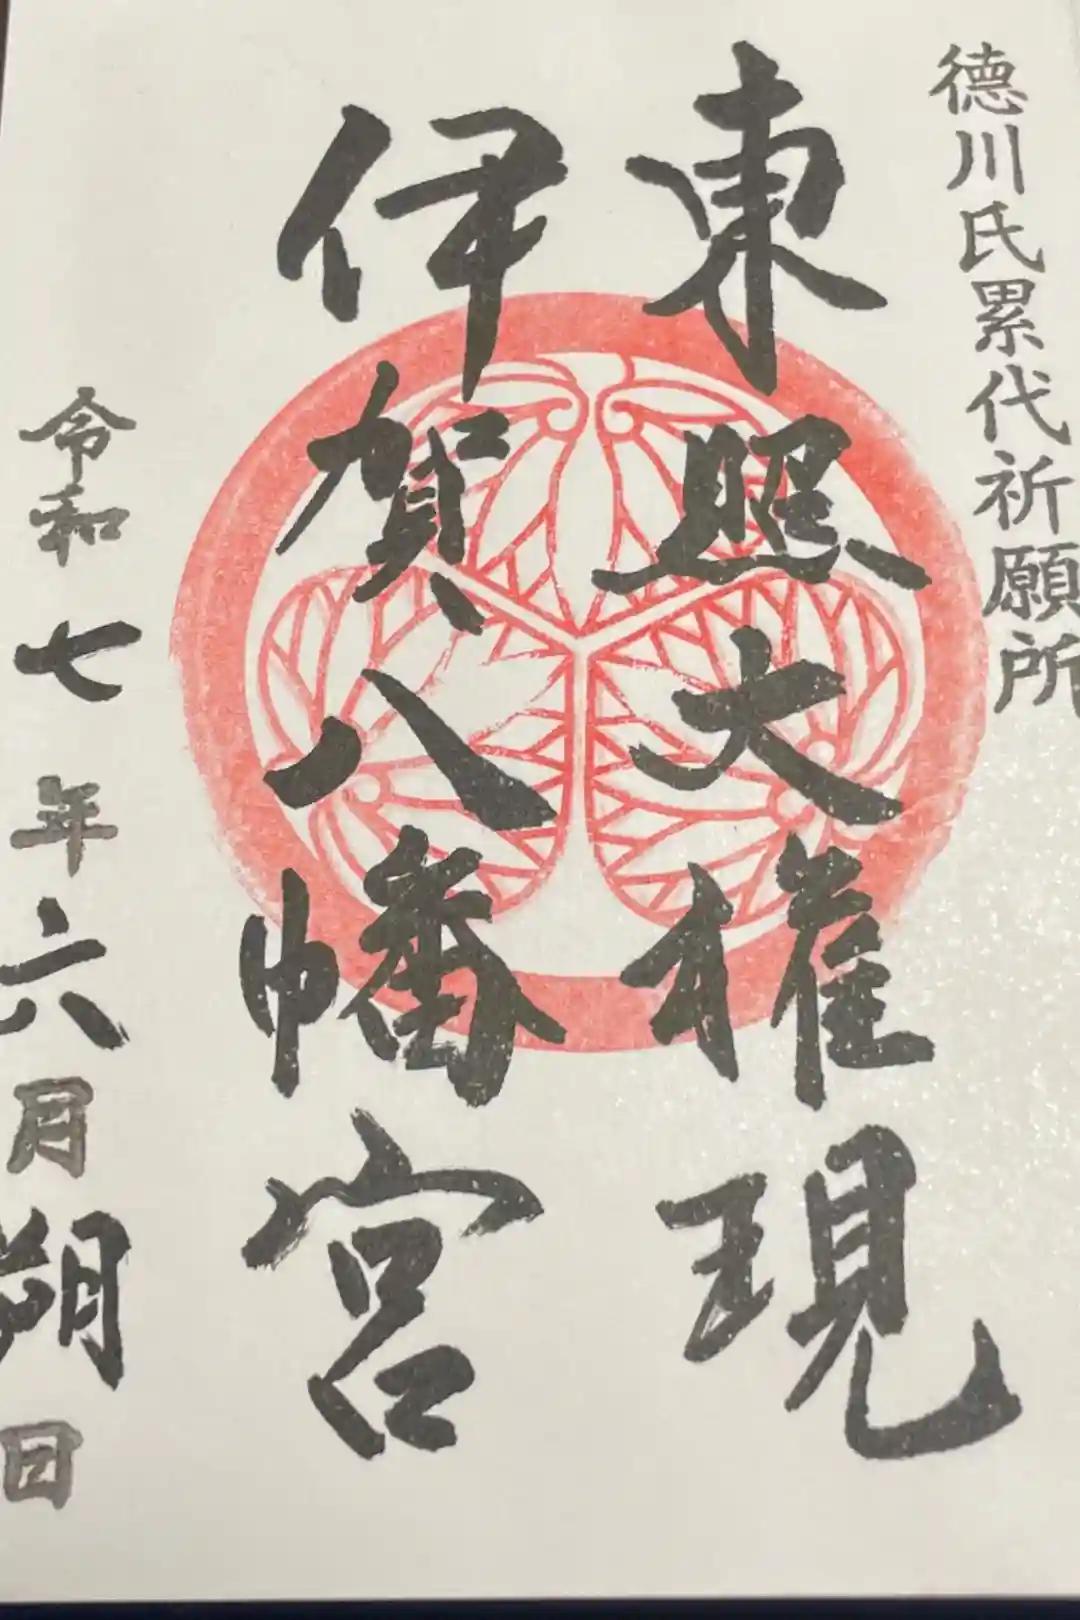 徳川氏累代祈願所
東照大権現
伊賀八幡宮
令和七年六月朔日